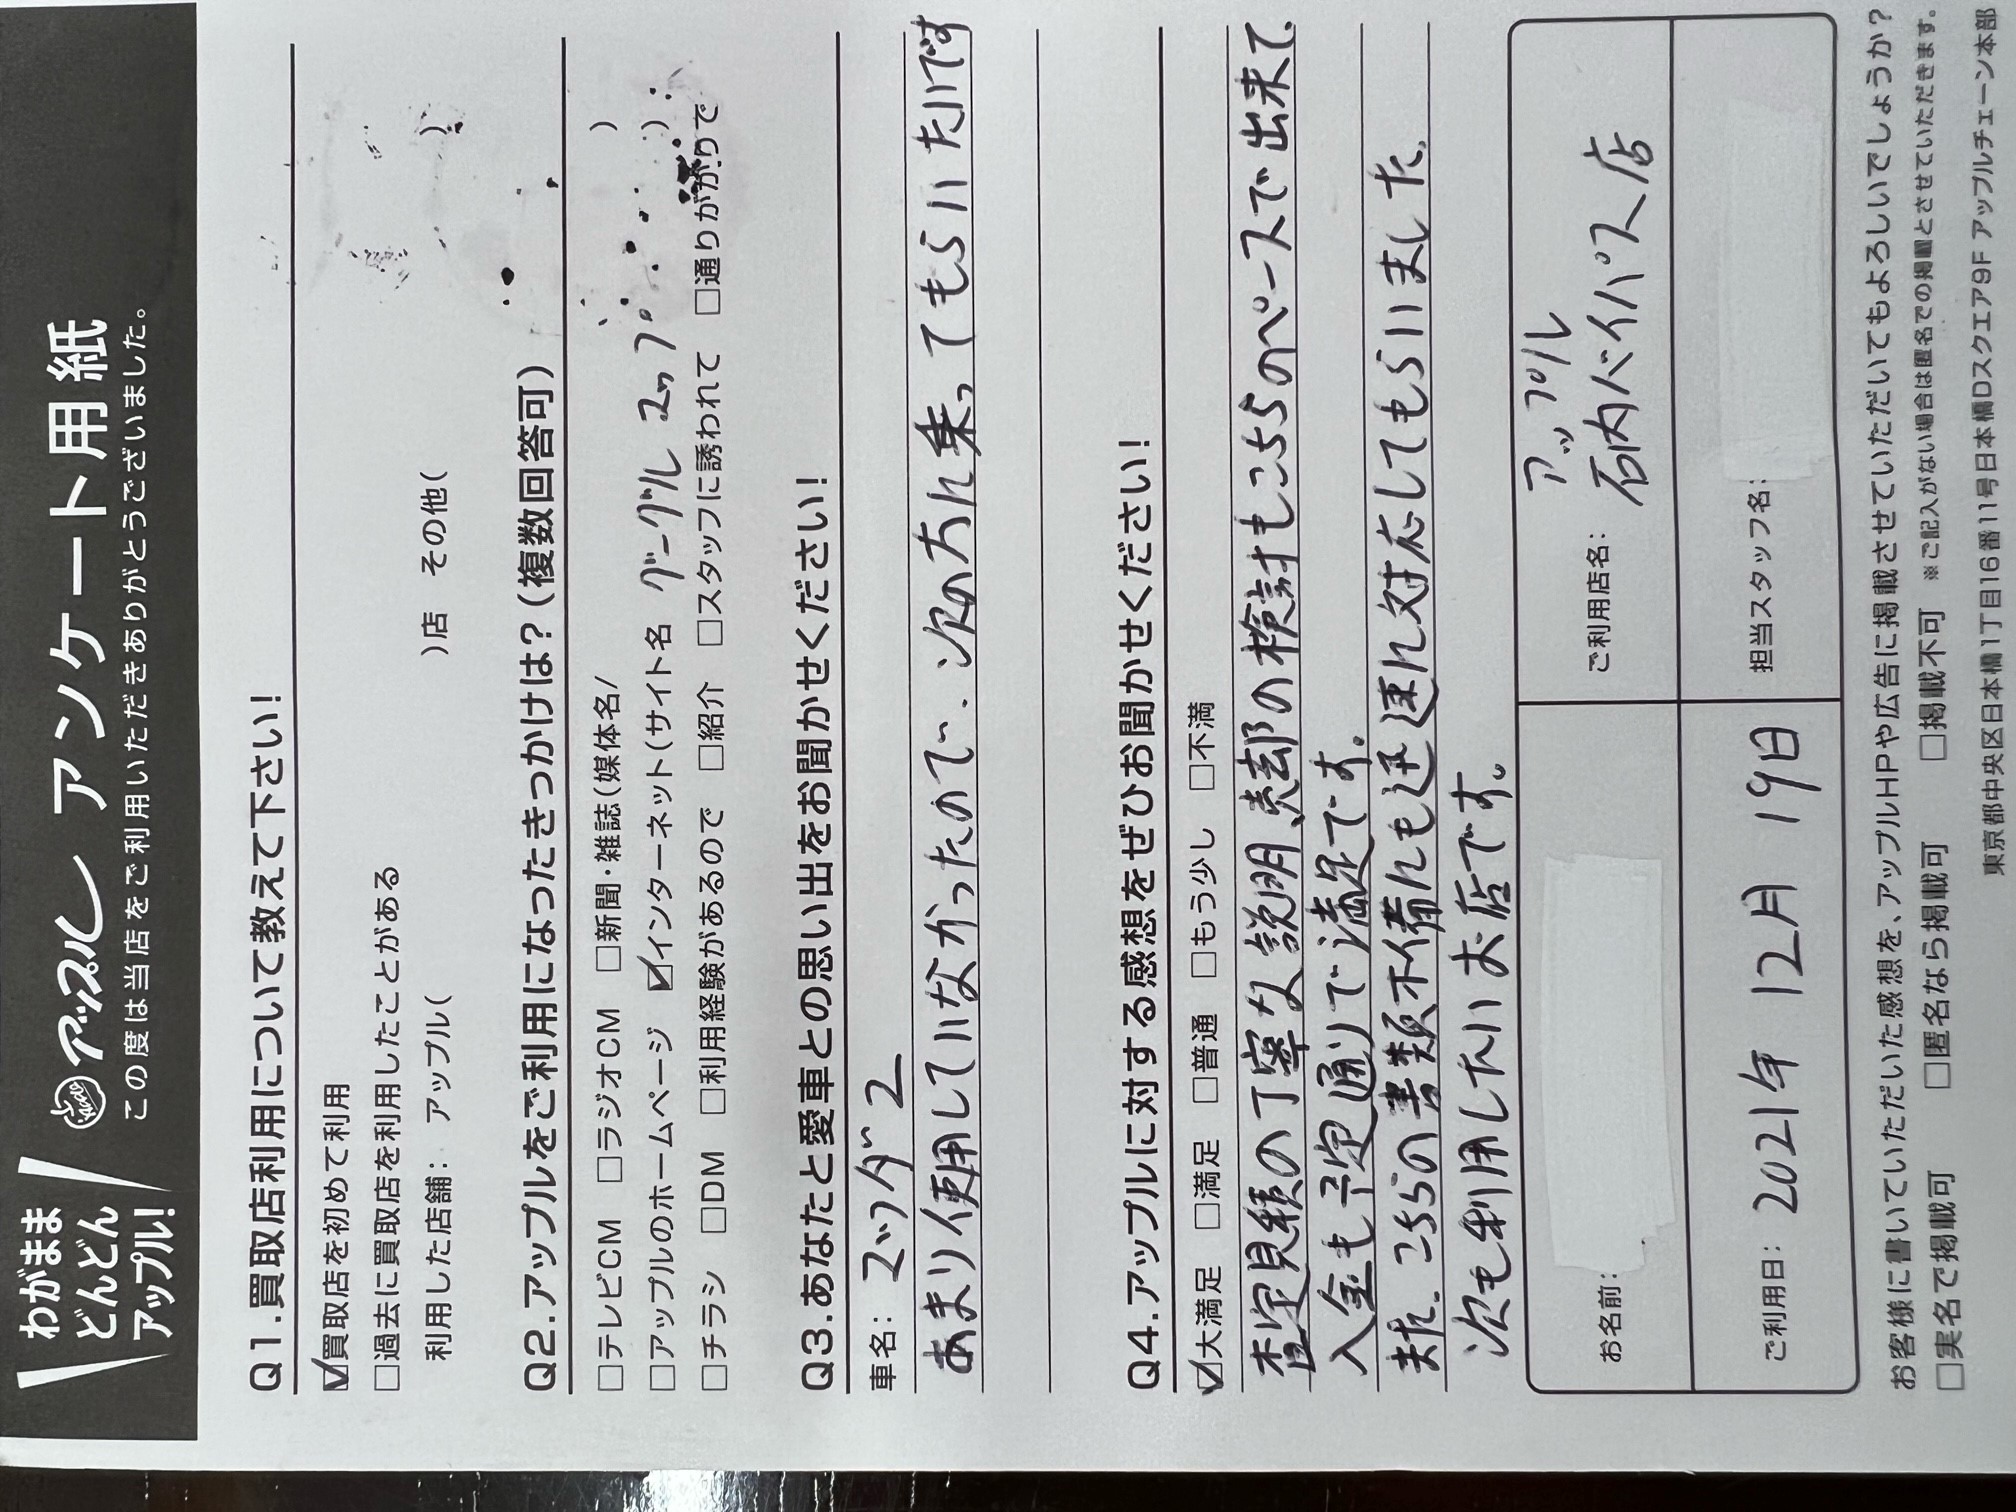 わがまま
どんどん
アップル!
アップル アンケート用紙
この度は当店をご利用いただきありがとうございました。
Q1.買取店利用について教えて下さい!
☑買取店を初めて利用
□過去に買取店を利用したことがある
利用した店舗: アップル( )店 その他( )
Q2.アップルをご利用になったきっかけは?(複数回答可)
□テレビCM □ラジオCM □新聞・雑誌(媒体名/ )
□アップルのホームページ ☑インターネット(サイト名 グーグル マップ )
□チラシ □DM □利用経験があるので □紹介 □スタッフに誘われて □通りがかりで
Q3.あなたと愛車との思い出をお聞かせください!
車名: マツダ 2
あまり使用していなかったので、次の方に乗ってもらいたいです
Q4.アップルに対する感想をぜひお聞かせください!
☑大満足 □満足 □普通 □もう少し □不満
査定見積の丁寧な説明、売却の検討もこちらのペースで出来て、
入金も予定通りで満足です。
また、こちらの書類不備にも迅速に対応してもらいました。
次も利用したいお店です。
お名前:
ご利用店名: アップル
石内バイパス店
ご利用日: 2021年 12月 19日
担当スタッフ名:
お客様に書いていただいた感想を、アップルHPや広告に掲載させていただいてもよろしいでしょうか?
□実名で掲載可 □匿名なら掲載可 □掲載不可 ※ご記入がない場合は匿名での掲載とさせていただきます。
東京都中央区日本橋1丁目16番11号日本橋Dスクエア9F アップルチェーン本部